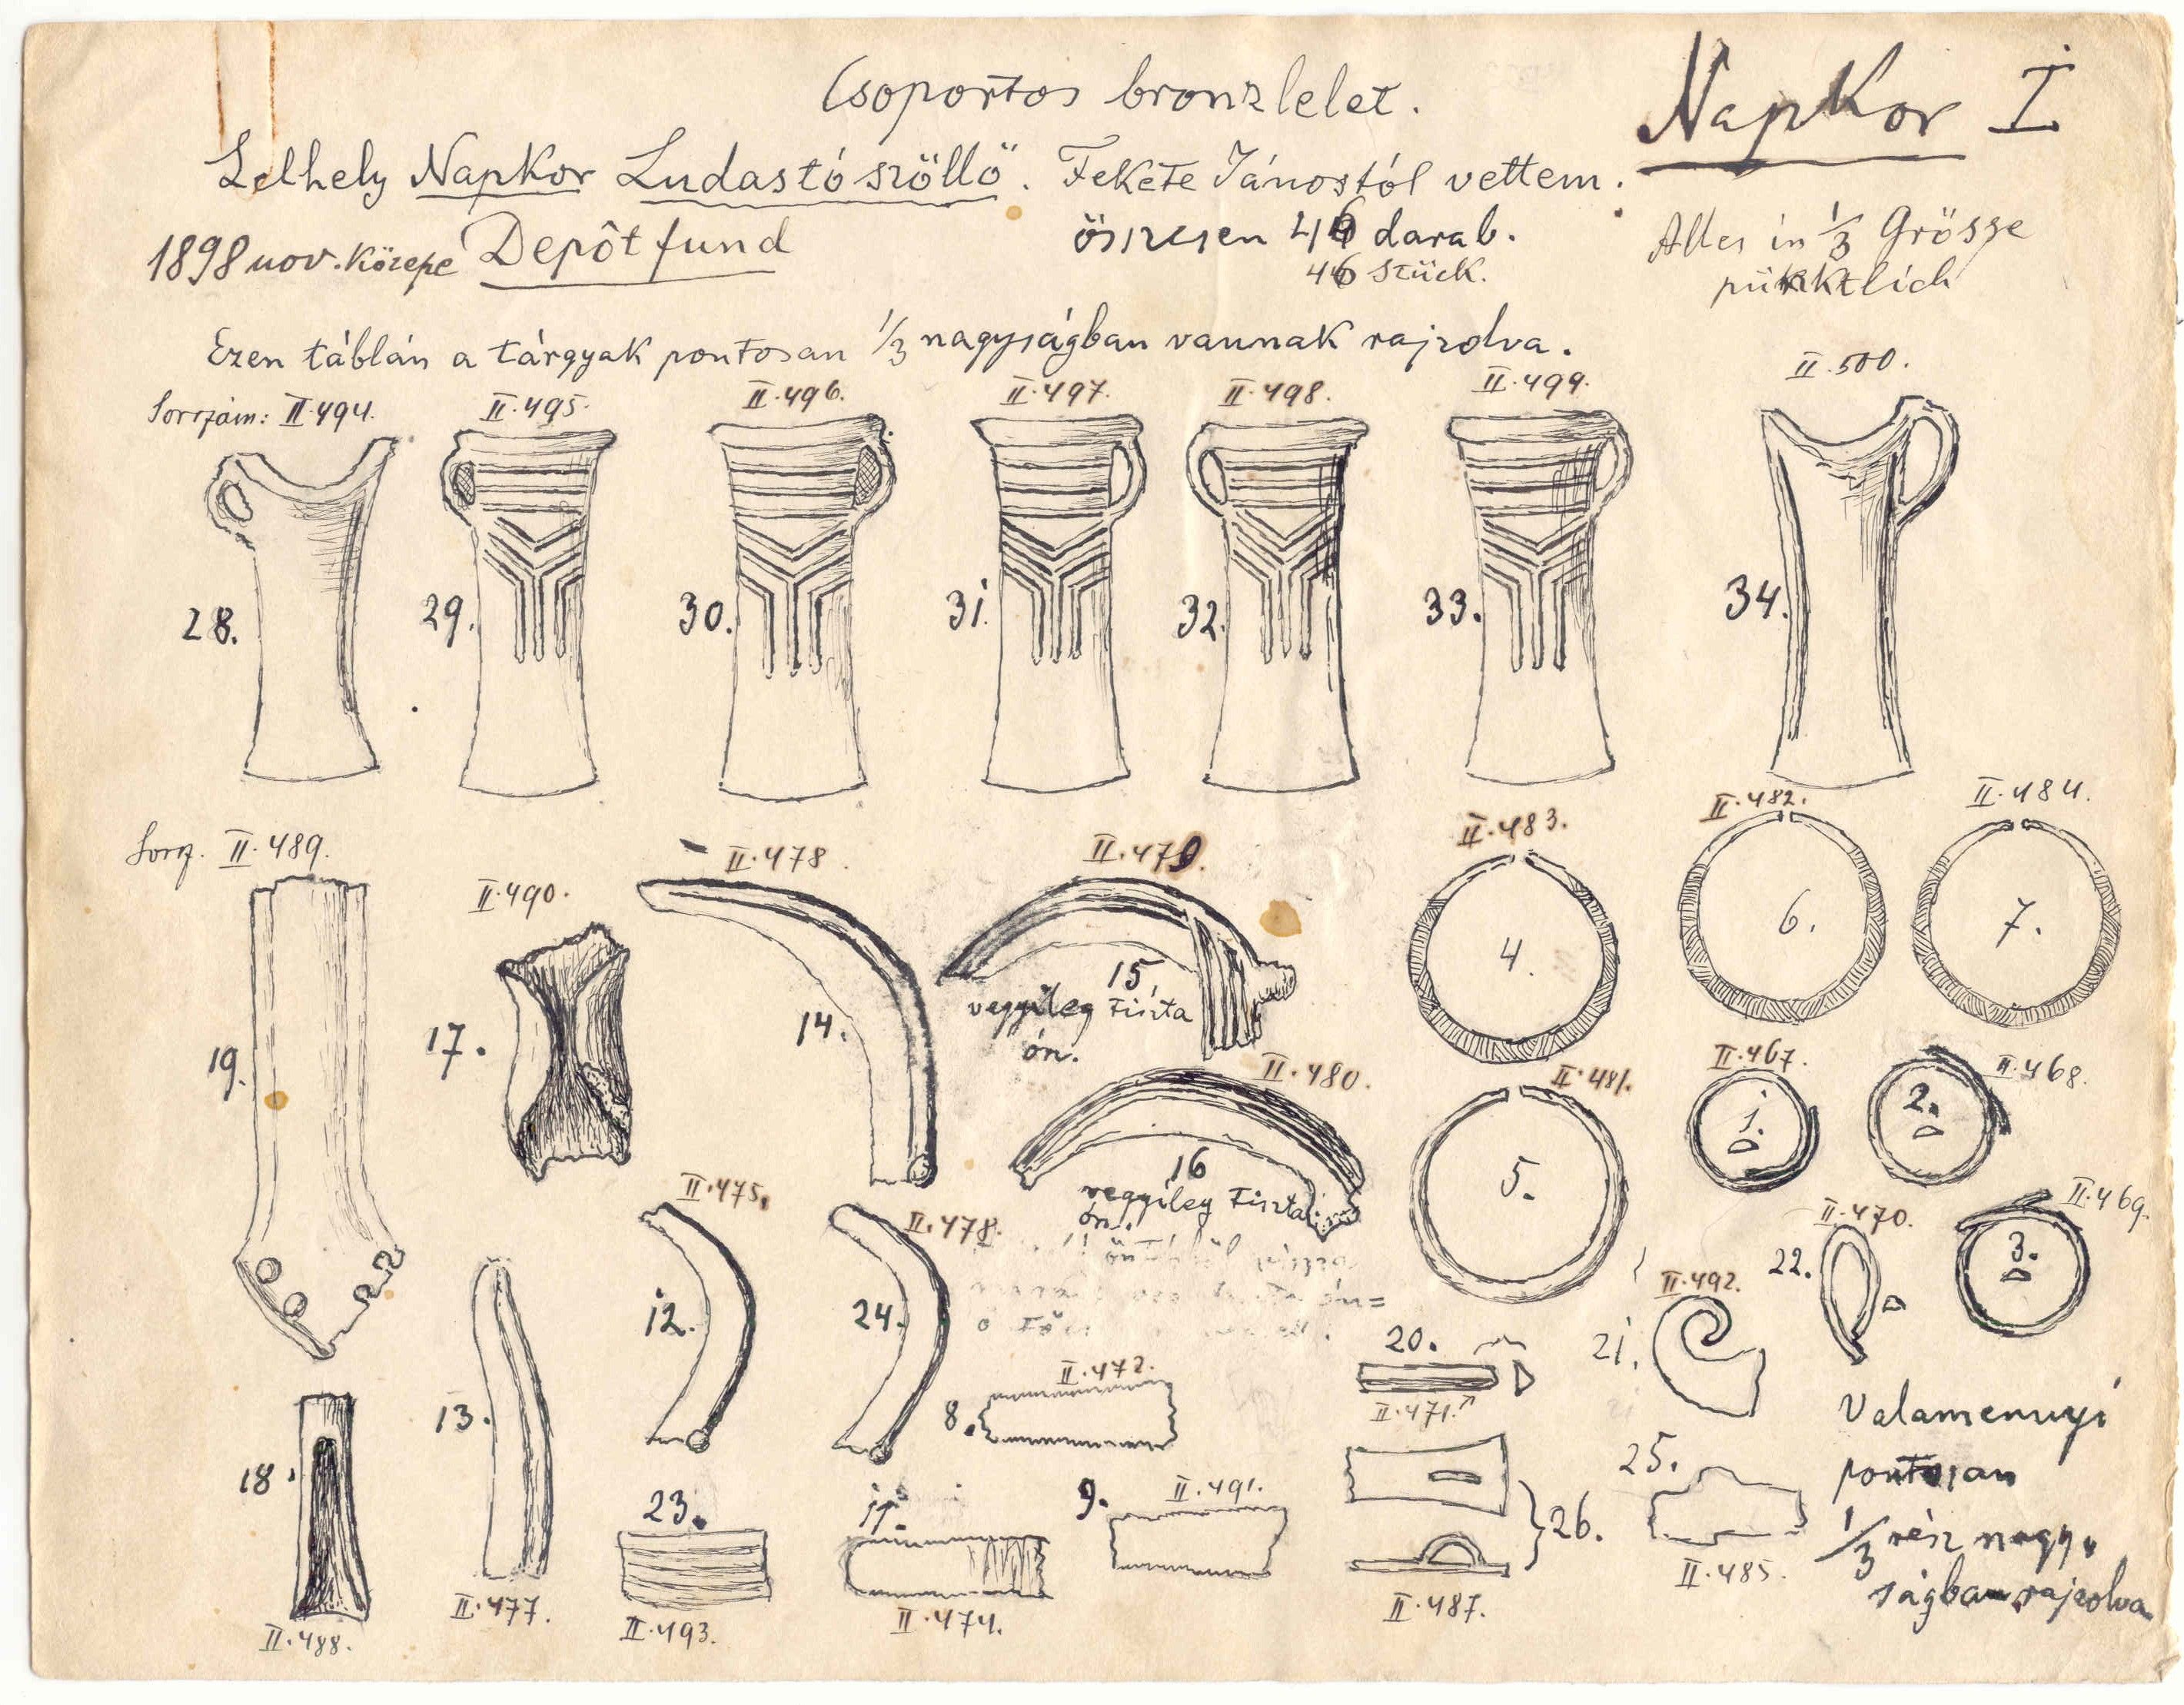 Csoportos bronzlelet.
Napkor I
Lelhely Napkor Ludastó szőllő. Fekete Jánostól vettem.
1898 nov. közepe Depôtfund
összesen 46 darab.
46 stück.
Alles in 1/3 Grösse
pünktlich
Ezen táblán a tárgyak pontosan 1/3 nagyságban vannak rajzolva.
Sorszám: II.494. II.495. II.496. II.497. II.498. II.499. II.500.
28. 29. 30. 31. 32. 33. 34.
Sorsz. II.489. II.490. II.478. II.479. II.483. II.482. II.484.
19. 17. 14. 15. 4. 6. 7.
vegyileg tiszta
ón.
II.480. II.481. II.467. II.468.
16 5. 1. 2.
vegyileg tiszta
ón.
II.475. II.478. II.492. II.470. II.469.
12. 24. 21. 22. 3.
13. 8. II.472. 20. II.471.
18. 23. 11. 9. II.491. 26. 25.
II.488. II.477. II.493. II.474. II.487. II.485.
Valamennyi
pontosan
1/3 rész nagy-
ságban rajzolva